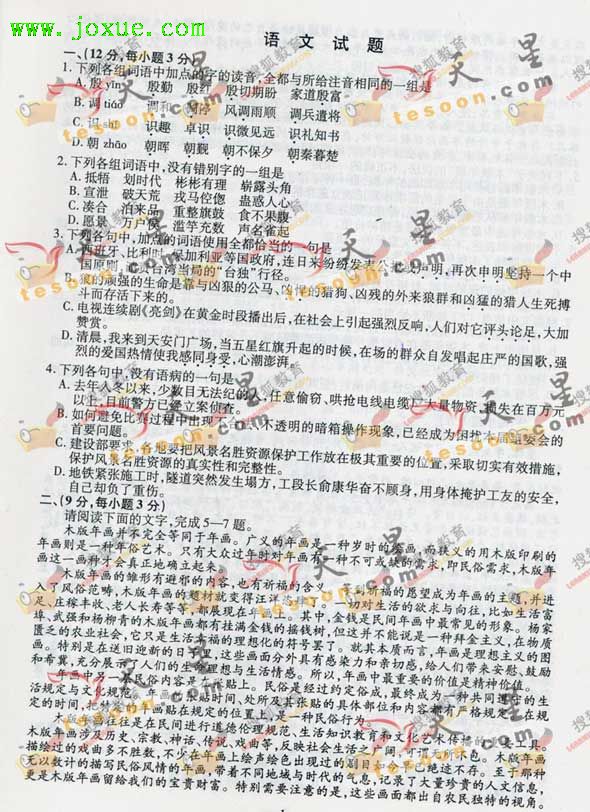 www.joxue.com
语 文 试 题
一、(12分,每小题3分)
1. 下列各组词语中加点的字的读音,全都与所给注音相同的一组是
A. 殷 yīn 殷勤 殷红 殷切期盼 家道殷富
B. 调 tiáo 调和 调停 风调雨顺 调兵遣将
C. 识 shí 识趣 卓识 识微见远 识礼知书
D. 朝 zhāo 朝晖 朝觐 朝不保夕 朝秦暮楚
2. 下列各组词语中,没有错别字的一组是
A. 抵牾 划时代 彬彬有理 崭露头角
B. 宣泄 破天荒 戎马倥偬 蛊惑人心
C. 凑合 泊来品 重整旗鼓 食不果腹
D. 愿景 万户侯 滥竽充数 声名雀起
3. 下列各句中,加点的词语使用全都恰当的一句是
A. 西班牙、比利时、保加利亚等国政府,连日来纷纷发表公报或声明,再次申明坚持一个中
国原则,反对台湾当局的“台独”行径。
B. 狼的顽强的生命是靠与凶狠的公马、凶悍的猎狗、凶残的外来狼群和凶猛的猎人生死搏
斗而存活下来的。
C. 电视连续剧《亮剑》在黄金时段播出后,在社会上引起强烈反响,人们对它评头论足,大加
赞赏。
D. 清晨,我来到天安门广场,当五星红旗升起的时候,在场的群众自发唱起庄严的国歌,强
烈的爱国热情使我感同身受,心潮澎湃。
4. 下列各句中,没有语病的一句是
A. 去年入冬以来,少数目无法纪的人,任意偷窃、哄抢电线电缆厂大量物资,损失在百万元
以上,目前警方已经立案侦查。
B. 如何避免比赛过程中出现不合理、不透明的暗箱操作现象,已经成为困扰本届组委会的
首要问题。
C. 建设部要求,各地要把风景名胜资源保护工作放在极其重要的位置,采取切实有效措施,
保护风景名胜资源的真实性和完整性。
D. 地铁紧张施工时,隧道突然发生塌方,工段长俞康华奋不顾身,用身体掩护工友的安全,
自己却负了重伤。
二、(9分,每小题3分)
请阅读下面的文字,完成5—7题。
木版年画并不完全等同于年画。广义的年画是一种岁时的绘画,而狭义的用木版印刷的
年画则是一种年俗艺术。只有大众过年时对年画有一种不可或缺的需求,即民俗需求,木版年
画这一画种才会真正地确立起来。
木版年画的雏形有避邪的内容,也有祈福的含义。等到祈福的愿望成为年画的主题,并进
入了风俗范畴,木版年画的题材就变得汪洋恣肆了。一切对生活的欲求与向往,比如生活富
足、庄稼丰收、老人长寿等等,都展现在年画上。其中,金钱是民间年画中最常见的形象。杨家
埠、武强和杨柳青的木版年画都有挂满金钱的摇钱树,但这并不能说是一种拜金主义,在物质
匮乏的农业社会,它只是生活幸福的理想化的符号罢了。就其本质而言,年画是理想主义的图
画。特别是在送旧迎新的日子里,这些画面分外具有感染力和亲切感,给人们带来安慰、鼓励
和希冀,充分展示了人们的生命理想与生活情感。所以,年画中最重要的价值是精神价值。
年画中另一民俗内容是在张贴上。民俗是经过约定俗成,最终成为一种共同遵行的生
活规定与文化规范。年画的张贴时间、处所及其张贴的具体部位和内容都有严格规定。在规
定的时间,把特定的年画贴在规定的位置上,是一种民俗行为。
木版年画往往是在民间进行道德伦理规范、生活知识教育和文化艺术传播的重要工具。
木版年画涉及历史、宗教、神话、传说、戏曲等,反映社会生活之广阔,可谓无所不包。木版年画
描绘过的戏曲多不胜数,不少在年画上绘声绘色出现过的剧目如今早已绝迹不存。至于那种
无以数计的描写民俗风情的年画,带着不同地域与时代的气息,记录了大量珍贵的人文信息,
更是木版年画留给我们的宝贵财富。特别需要注意的是,这些画面都出自农民独特的视角。